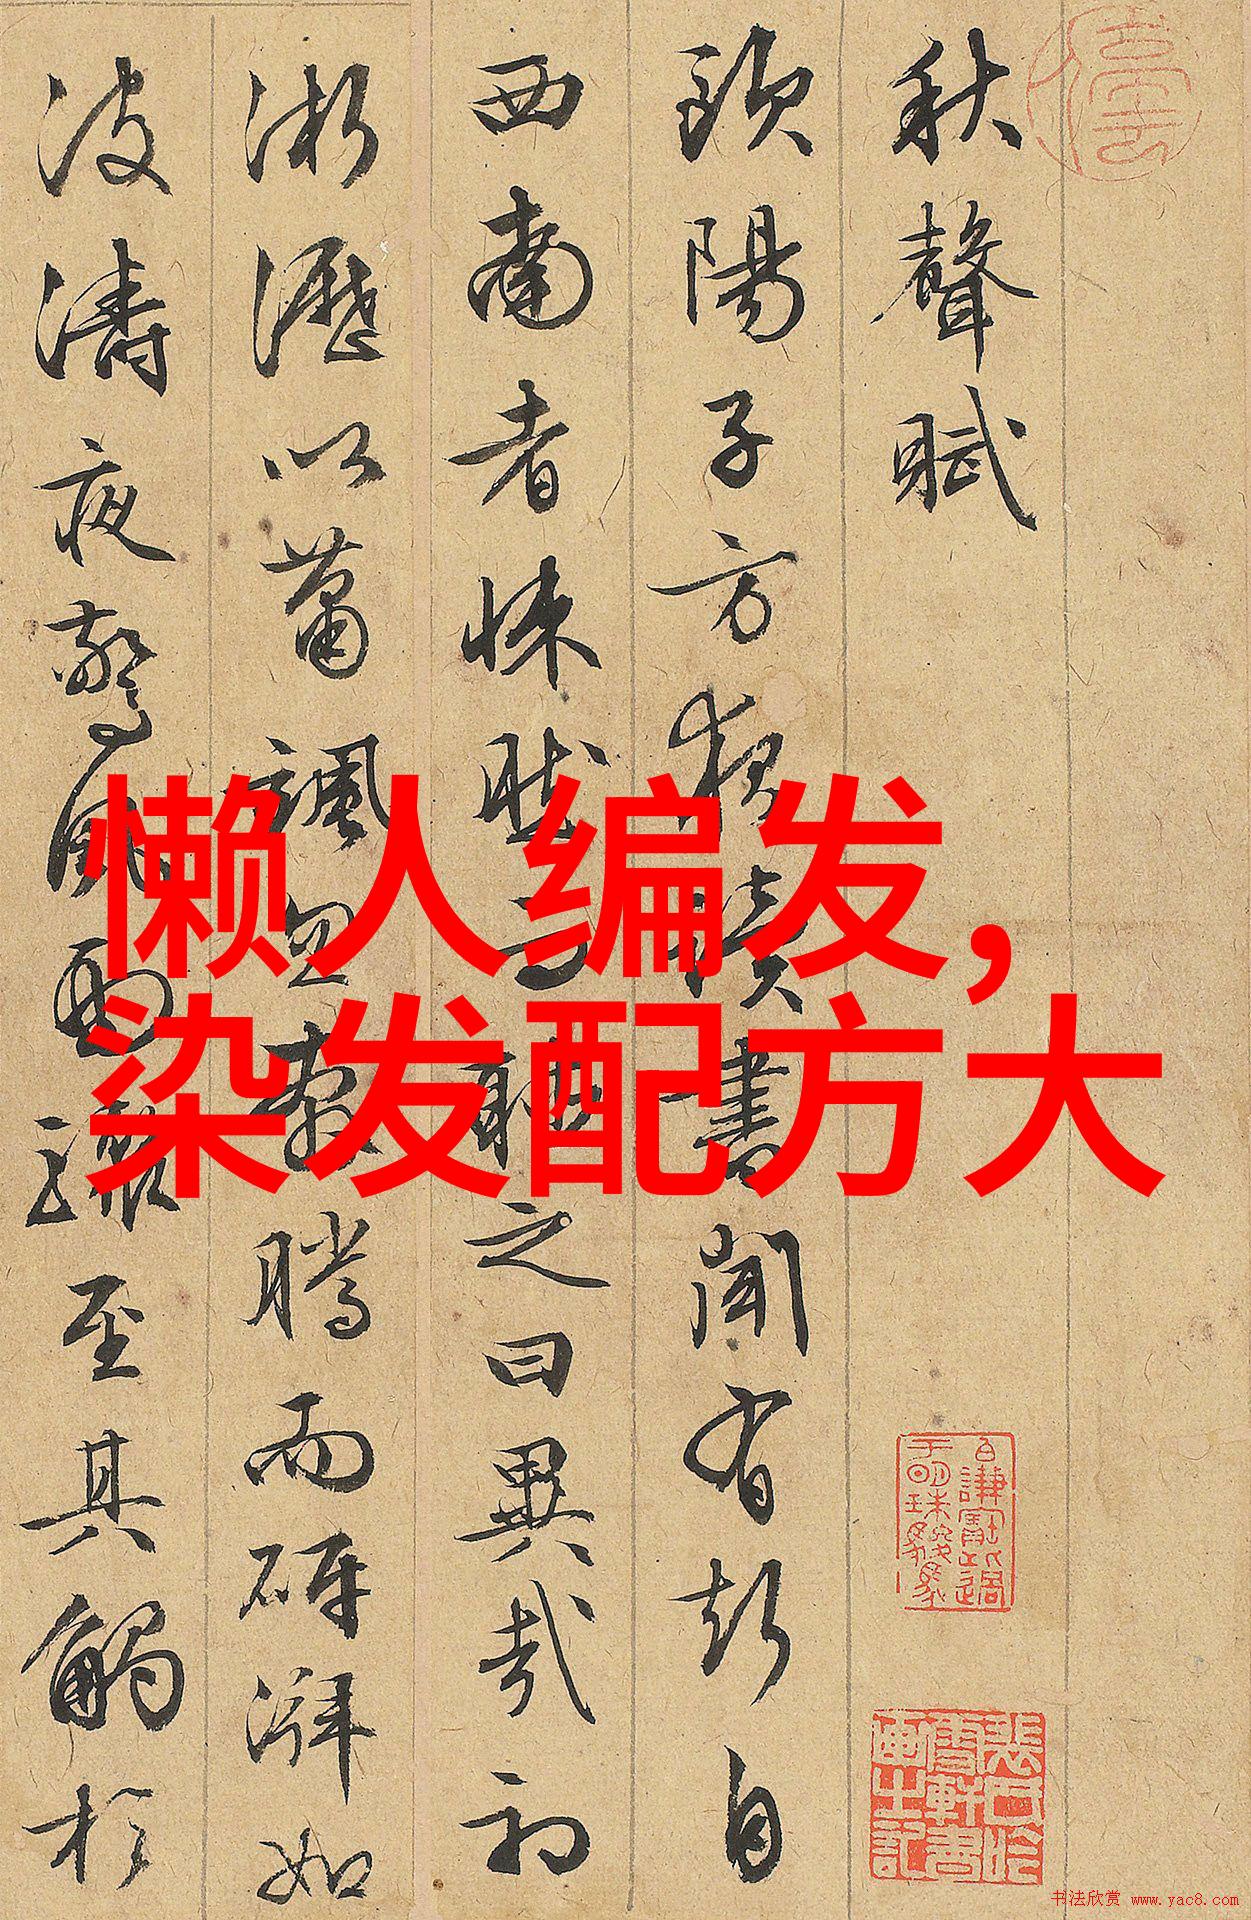 秋聲賦
歐陽子方夜讀書聞有聲自
西南者悚然而聽之曰異哉初
淅瀝以蕭颯忽奔騰而砰湃如
波濤夜驚風雨驟至其觸於
懒人编发，
染发配方大
书法欣赏 www.yac8.com